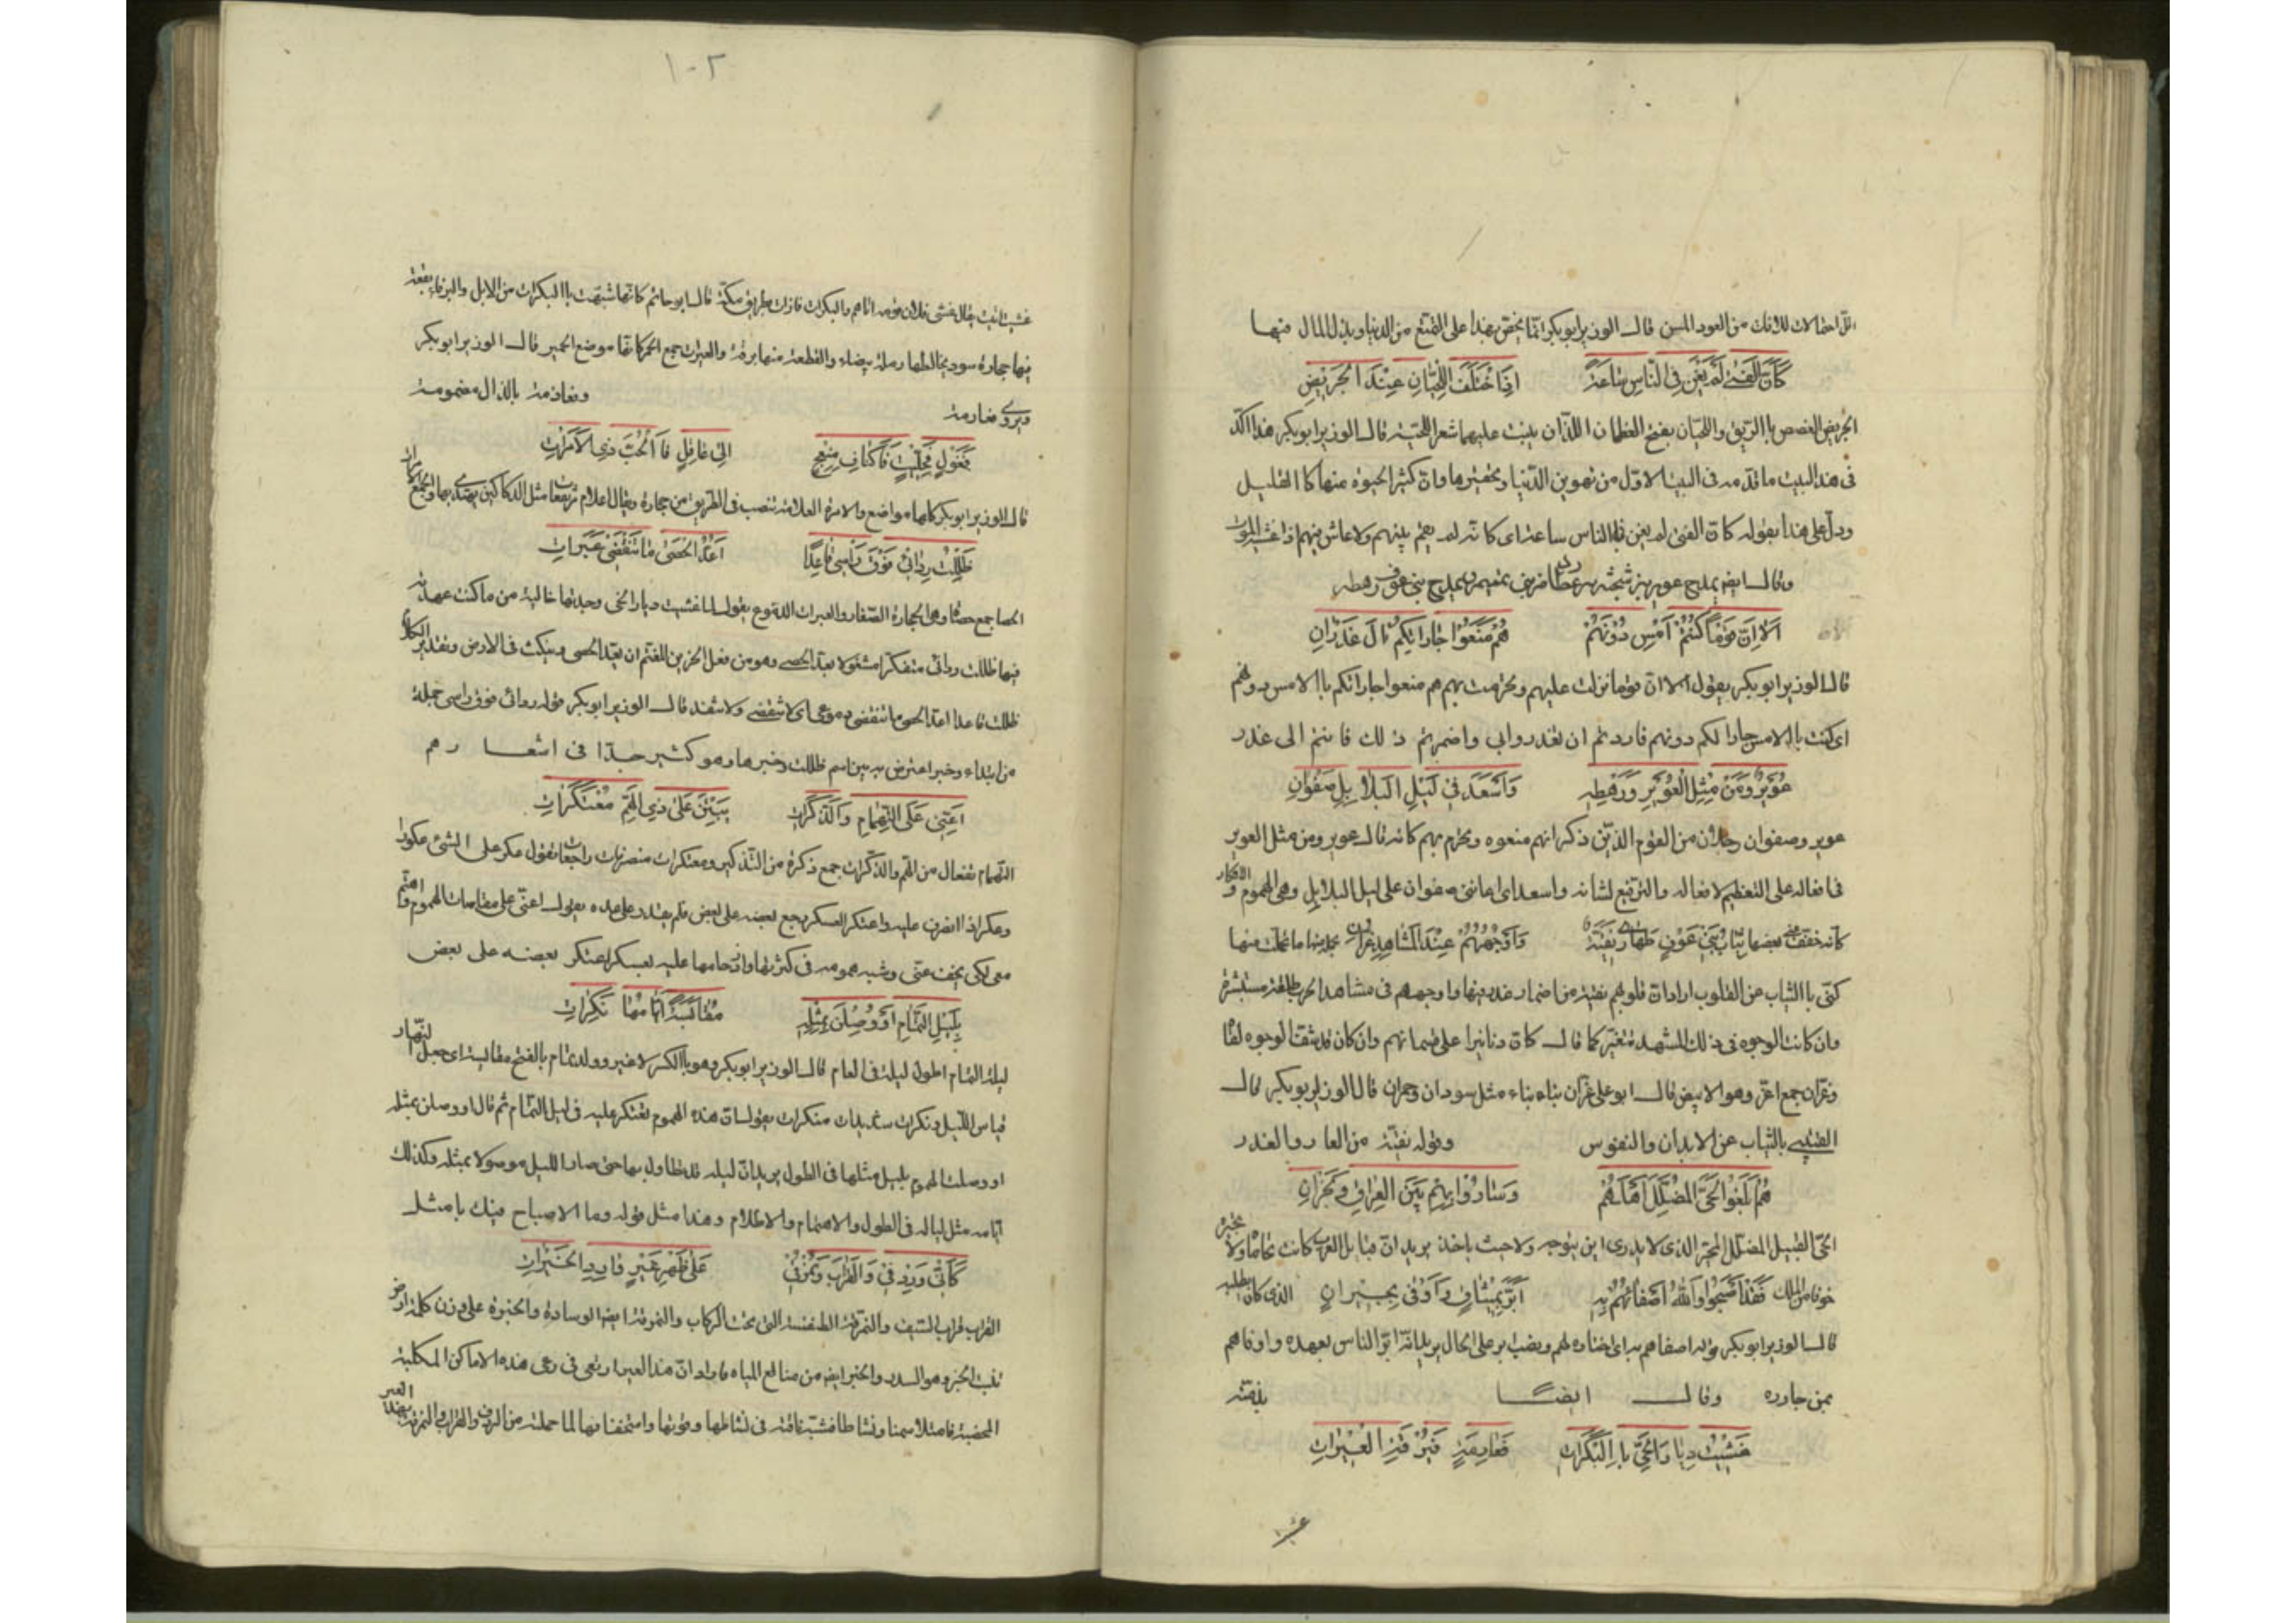 اقل احتمالات للانفك من العود المسن قال الوزير ابوبكر انما يحض بهذا على التمتع من الدنيا وبذل المال فيها
كَأَنَّ الْفَتَى لَمْ يَغْنَ فِي النَّاسِ سَاعَةً اِذَا اخْتَلَفَ اللَّحْيَانِ عِنْدَ الْجَرِيضِ
الجريض الغصص باالريق واللحيان بفتح العظمان اللذان ينبت عليهما شعر اللحية قال الوزير ابوبكر هذا اكد
فى هذا البيت ما قدمه فى البيت الاول من تهوين الدنيا وتحقيرها وان كثير الحيوة منها كا القليل
ودل على هذا بقوله كان الفتى لم يغن فى الناس ساعة اى كانه لم يقم بينهم ولا عاش فيهم اذا غشيه الموت
وقال ايضا يمدح عوير بن شجنة بن عطارد من بنى تميم ويمدح بنى عوف رهطه
اَلَا اِنَّ قَوْمًا كُنْتُمْ اَمْسِ دُوْنَهُمْ هُمْ مَنَعُوْا جَارَاتِكُمْ اٰلَ غَدْرَانِ
قال الوزير ابوبكر يقول الا ان قوما نزلت عليهم وتحرمت بهم هم منعوا جاراتكم باالامس دونهم
اى كنت باالامس جارا لكم دونهم فاردتم ان تغدروا بى واضمرتم ذلك فانتم الى غدر
عُوَيْرٌ وَمَنْ مِثْلُ الْعُوَيْرِ وَرَهْطِهِ وَاَسْعَدَ فِيْ لَيْلِ الْبَلَابِلِ صَفْوَانِ
عوير وصفوان رجلان من القوم الذين ذكر انهم منعوه وتحرم بهم كانه قال عوير ومن مثل العوير
فى افعاله على التعظيم لافعاله والترفيع لشانه واسعد اى اعاننى صفوان على ليل البلابل وهى الهموم والافكار
كانه خفف عنى بعضها ثِيَابُ بَنِي عَوْفٍ طَهَارَى نَقِيَّةٌ وَاَوْجُهُهُمْ عِنْدَ الْمَشَاهِدِ غُرَّانِ
كنى باالثياب عن القلوب اراد ان قلوبهم نقية من اضمار غدر فيها واوجههم فى مشاهد الحرب طلقة مستبشرة
وان كانت الوجوه فى ذلك المشهد متغير كما قال كان دنانيرا على قسماتهم وان كان قد شف الوجوه لقا
وغران جمع اغر وهو الابيض قال ابو على غران بناه بناء مثل سودان وحمران قال الوزير ابوبكر قال
القتيبى بالثياب عن الابدان والنفوس وقوله نقية من العار والغدر
هُمْ بَلَغُوا الْحَيَّ الْمُضَلَّلَ اَهْلُهُمْ وَسَارُوْا بِهِمْ بَيْنَ الْعِرَاقِ وَنَجْرَانِ
الحى القبيل المضلل المتحير الذى لا يدرى اين يتوجه ولا حيث ياخذ يريد ان قبايل العرب كانت تحاماه ولا تجيره
خوفا من الملك فَقَدْ اَصْبَحُوْا وَاللّٰهُ اَصْفَاهُمْ بِهِ اَبَرَّ بِمِيْثَاقٍ وَاَوْفٰى بِجِيْرَانِ الذى كان يطلبه
قال الوزير ابوبكر قوله اصفاهم به اى اختاره لهم ونصب ابر على الحال يريد انه ابر الناس بعهده واوفاهم
بمن جاوره وقال ايضا بذمته
غَشِيْتُ دِيَارَ الْحَيِّ باِالْبَكَرَاتِ فَعَارِمَةٍ فَبُرْقَةِ الْعِيَرَاتِ
١٠٢
غشيت اتيت يقال غشى فلان قومه اتاهم والبكرات قارات بطريق مكة قال ابو حاتم كانها شبهت باالبكرات من الابل والبرقاء بقعة
فيها حجارة سود يخالطها رملة بيضاء والقطعة منها برقة والعيرات جمع الحمر كانها موضع الحمير قال الوزير ابوبكر
ويروى فعارمة وفعاذمة بالذال مضمومة
فَغَوْلٍ فَحِلِّيْتٍ فَاَكْنَافِ مِنْعِجٍ اِلٰى عَاقِلٍ فَاالْجُبِّ ذِي الْاَمَرَاتِ
قال الوزير ابوبكر كلها مواضع والامرة العلامة تنصب فى الطريق من حجارة ويقال اعلام ترفعها مثل الدكاكين يهتدى بها والجمع امرات
ظَلِلْتُ رِدَائِيْ فَوْقَ رَأْسِي قَاعِدًا اَعُدُّ الْحَصٰى مَا تَنْقَضِيْ عَبَرَاتِ
الحصا جمع حصاة وهى الحجارة الصغار والعبرات الدموع يقول لما غشيت ديار الحى وجدتها خالية من ما كنت عهدته
فيها ظللت ردائى متفكرا مشغولا بعد الحصى وهو من فعل الحزين المغتم ان يعد الحصى وينكت فى الارض وتقدير الكلام
ظللت قاعدا اعد الحصى ما تنقضى دموعى اى لا تنقضى ولا تنفد قال الوزير ابوبكر قوله ردائى فوق راسى جملة
من ابتداء وخبر اعترض به بين اسم ظللت وخبرها وهو كثير جدا فى اشعارهم
اَعِنِّيْ عَلَى التَّهْمَامِ وَالذِّكَرَاتِ يَبِتْنَ عَلٰى ذِي الْهَمِّ مُعْتَكِرَاتِ
التهمام تفعال من الهم والذكرات جمع ذكرة من التذكير ومعتكرات منصرفات راجعات تقول عكر على الشئ عكورا
وعكرا اذا انصرف عليه واعتكر العسكر رجع بعضه على بعض فلم يقدر على عده يقول اعنى على مقاسات الهموم واهتم
معى لكى يخف عنى وشبه همومه فى كثرتها وازدحامها عليه بعسكر اعتكر بعضه على بعض
بِلَيْلِ التِّمَامِ اَوْ وُصِلْنَ بِمِثْلِهِ مُقَايَسَةً اَيَّامُهَا نَكِرَاتِ
ليلة التمام اطول ليلة فى العام قال الوزير ابوبكر وهو باالكسر لا غير وولد تمام بالفتح مقايسة اى جعل النهار
قياس الليل ونكرات شديدات منكرات يقول ان هذه الهموم تعتكر عليه فى ليل التمام ثم قال او وصلن بمثله
او وصلت الهموم بليل مثلها فى الطول يريد ان ليله قد تطاول بها حتى صار الليل موصولا بمثله وكذلك
ايامه مثل لياله فى الطول والاهتمام والاظلام وهذا مثل قوله وما الاصباح فيك بامثل
كَاَنِّيْ وَرِدْفِيْ وَالْقِرَابَ وَنُمْرُقِيْ عَلٰى ظَهْرِ عَيْرٍ وَارِدِ الْخَبِرَاتِ
القراب قراب السيف والنمرقة الطنفسة التى تحت الركاب والنمرقة ايضا الوسادة والخبرة على وزن كلمة ارض
تنبت الخبر وهو السدر والخبر ايضا من مناقع المياه فاراد ان هذا العير ارتعى فى رعى هذه الاماكن المكلئة
المخصبة فامتلا سمنا ونشاطا فشبه ناقته فى نشاطها وقوتها واستخفافها لما حملته من الردف والقراب والنمرقة بهذا العير